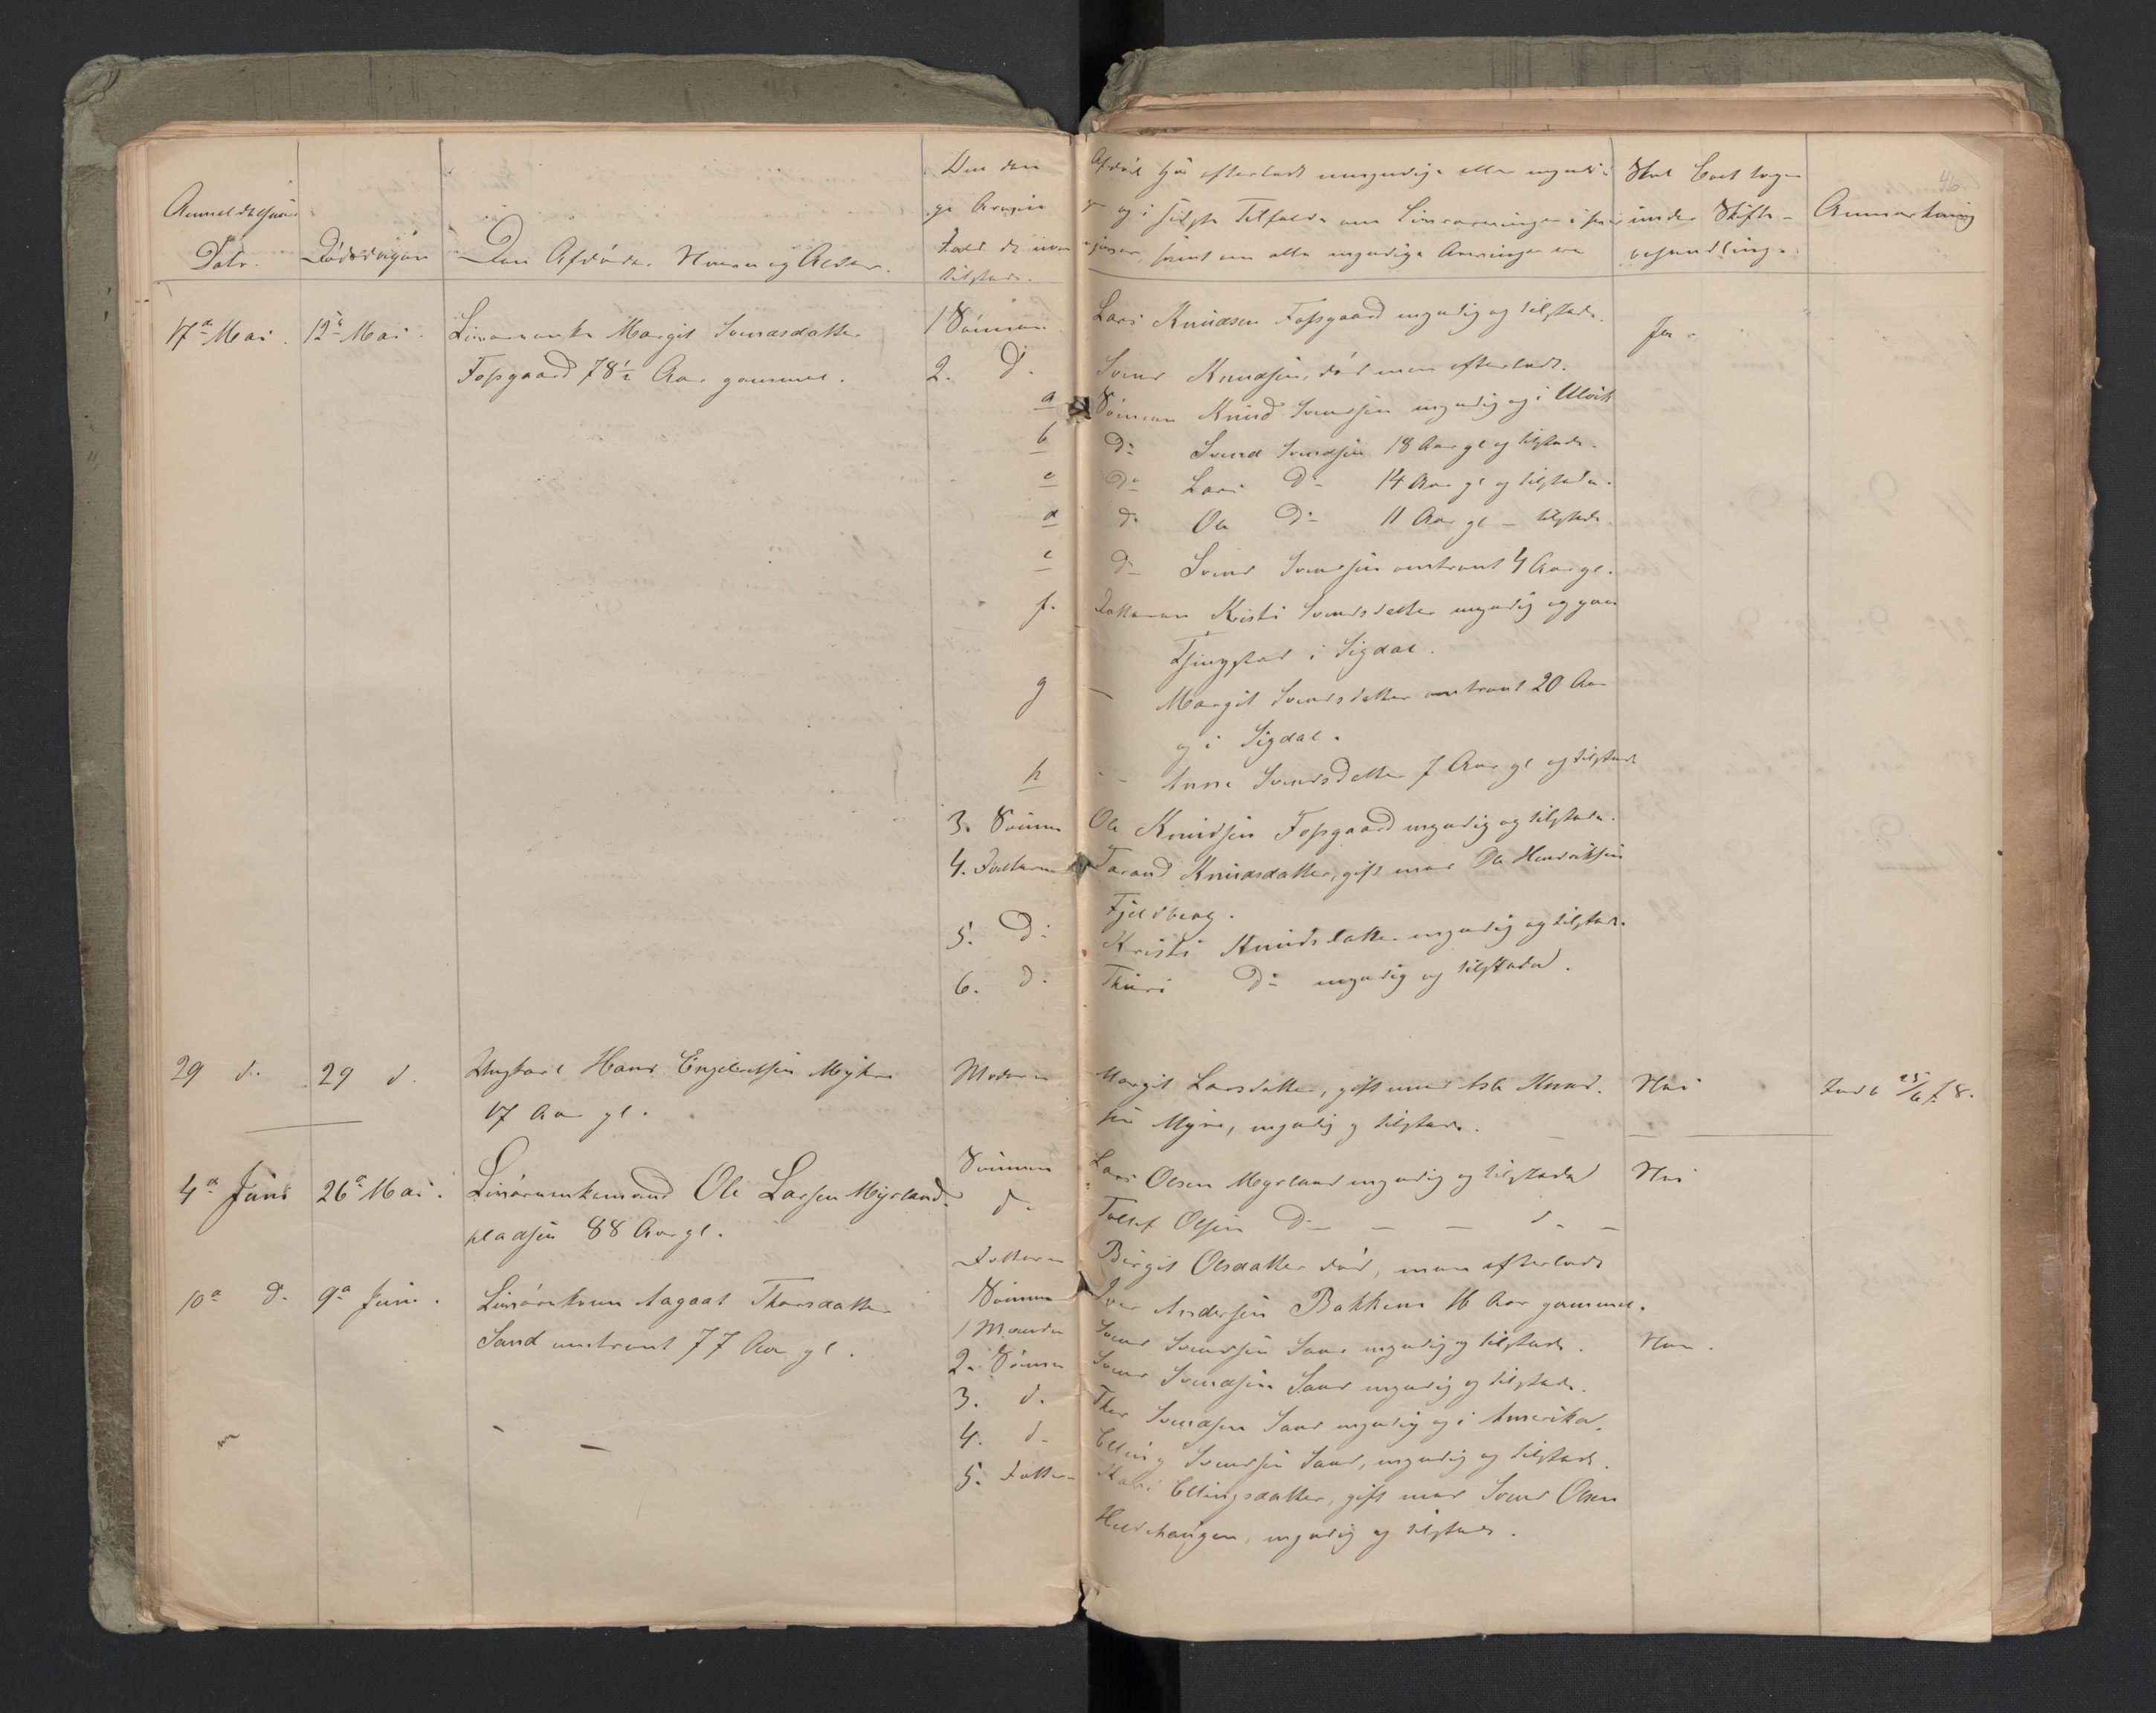 46
Anmeldelsens
Dato.
Dødsdagen
Den Afdødes Navn og Alder.
Om den
Afdøde har efterladt umyndige eller myndi-
ge Arvinger
og i sidste Tilfælde om Livsarvinger i
samt om alle myndige Arvinger ere
tilstede.
Skal Boet tages
under Skifte-
behandling.
Anmærkning
17de Mai. 12te Mai. Livørenke Margit Svendsdatter 1 Sønnen Lars Knudsen Fossgaard myndig og tilstede. Ja.
Fossgaard 78½ Aar gammel. 2. Do. Svend Knudsen, død men efterladt.
a Sønnen Knud Svendsen myndig og i Ulvik
b Do Svend Svendsen 18 Aar gl og tilstede.
c Do Lars Do 14 Aar gl og tilstede.
d do Ole Do 11 Aar gl – tilstede.
e do Svend Svendsen omtrent 4 Aar gl.
f. Datteren Kristi Svendsdatter myndig og gaar
i Sigdal.
g – Margit Svendsdatter omtrent 20 Aar
og i Sigdal.
h – – Anne Svendsdatter 7 Aar gl og tilstede
3. Sønnen Ole Knudsen Fossgaard myndig og tilstede.
4. Datteren Tarand Knudsdatter, gift med Ole Henriksen
Fjeldberg.
5. Do: Kristi Knudsdatter myndig og tilstede.
6. do. Thuri Do myndig og tilstede.
29 d. 29 d. Ungkarl Hans Engebretsen Myhre Moderen Margit Larsdatter, gift med Knud- Nei 25/6 78.
17 Aar gl. sen Myre, myndig og tilstede.
4de Juni 26de Mai. Livøremkemand Ole Larsen Myrland- Sønnen Lars Olsen Myrland myndig og tilstede Nei
pladsen 88 Aar gl. d. Tollef Olsen Do – – d. –
Datteren Birgit Olsdatter død, men efterladt
Sønnen Iver Andersen Bakken 16 Aar gammel.
10de d. 9de Juni. Livørekone Aagaat Thorsdatter 1 Manden Svend Svendsen Sand myndig og tilstede. Nei.
Sand omtrent 77 Aar gl. 2. Sønnen Svend Svendsen Sand myndig og tilstede.
3. d. Thor Svendsen Sand myndig og i Amerika.
4. d. Elling Svendsen Sand, myndig og tilstede.
5. Datteren Kari Ellingsdatter, gift med Svend Olsen
myndig og tilstede.